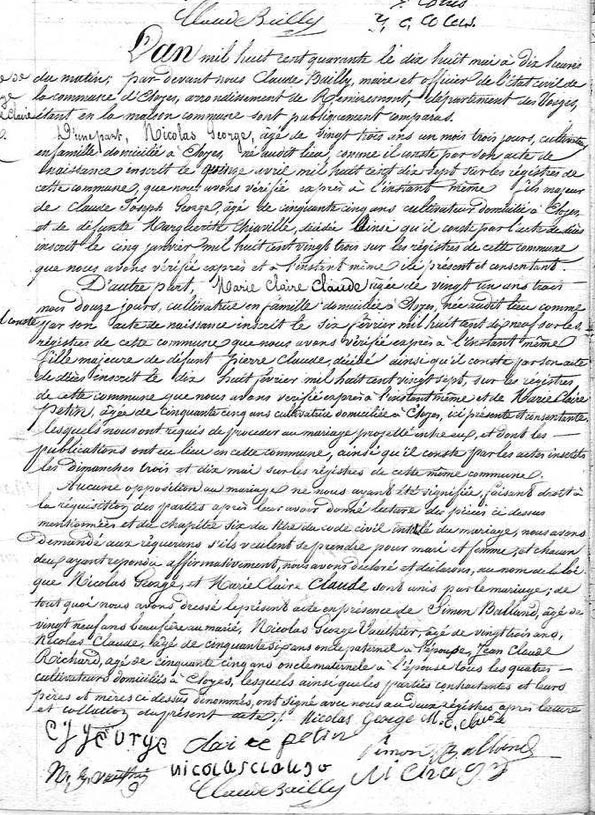 Claude Bailly
L'an mil huit cent quarante le dix huit mai à dix heures
du matin, par devant nous Claude Bailly, maire et officier de l'état civil de
la commune d'Eloyes, arrondissement de Remiremont, département des Vosges,
étant en la maison commune sont publiquement comparus.
D'une part, Nicolas George, âgé de vingt trois ans un mois trois jours, cultivateur
en famille domicilié à Eloyes, né audit lieu, comme il conste par son acte de
naissance inscrit le quinze avril mil huit cent dix sept sur les régistres de
cette commune, que nous avons vérifié exprès à l'instant même, fils majeur
de Claude Joseph George, âgé de cinquante cinq ans cultivateur domicilié à Eloyes,
et de défunte Marguerite décédée ainsi qu'il conste par l'acte de décès
inscrit le cinq janvier mil huit cent vingt trois sur les régistres de cette commune
que nous avons vérifié exprès et à l'instant même ici présent et consentant.
D'autre part, Marie Claire Claude âgée de vingt un ans trois
mois douze jours, cultivatrice en famille domiciliée à Eloyes, née audit lieu comme
il conste par son acte de naissance inscrit le six février mil huit cent dix neuf sur les
régistres de cette commune que nous avons vérifié exprès à l'instant même
fille majeure de défunt Pierre Claude, décédé ainsi qu'il conste par son acte
de décès inscrit le dix huit février mil huit cent vingt sept, sur les régistres
de cette commune que nous avons vérifié exprès à l'instant même et de Marie Claire
Petin, âgée de cinquante cinq ans cultivatrice domiciliée à Eloyes, ici présente et consentante
lesquels nous ont requis de procéder au mariage projetté entre eux, et dont les
publications ont eu lieu en cette commune, ainsi qu'il conste par les actes inscrits
les dimanches trois et dix mai sur les régistres de cette même commune.
Aucune opposition au mariage ne nous ayant été signifiée, faisant droit à
la réquisition des parties après leur avoir donné lecture des pièces ci dessus
mentionnées et du chapitre six du titre du code civil intitulé du mariage, nous avons
demandé aux requérans s'ils veulent se prendre pour mari et femme, et chacun
d'eux ayant répondu affirmativement, nous avons déclaré et déclarons, au nom de la loi
que Nicolas George, et Marie Claire Claude sont unis par le mariage; de
tout quoi nous avons dressé le présent acte en présence de Simon Balland, âgé de
vingt neuf ans beau frère au marié, Nicolas George Vauthier, âgé de vingt trois ans,
Nicolas Claude, âgé de cinquante six ans oncle paternel à l'épouse, Jean Claude
Richard, âgé de cinquante cinq ans oncle maternel à l'épouse tous les quatre
cultivateurs domiciliés à Eloyes, lesquels ainsi que les parties contractantes et leurs
pères et mères ci dessus dénommés, ont signé avec nous aux deux régistres après lecture
et collation du présent acte. Nicolas George M. C. Claude
C J George claire petin Simon Balland
N. G. Vauthier nicolas claude Richard
Claude Bailly